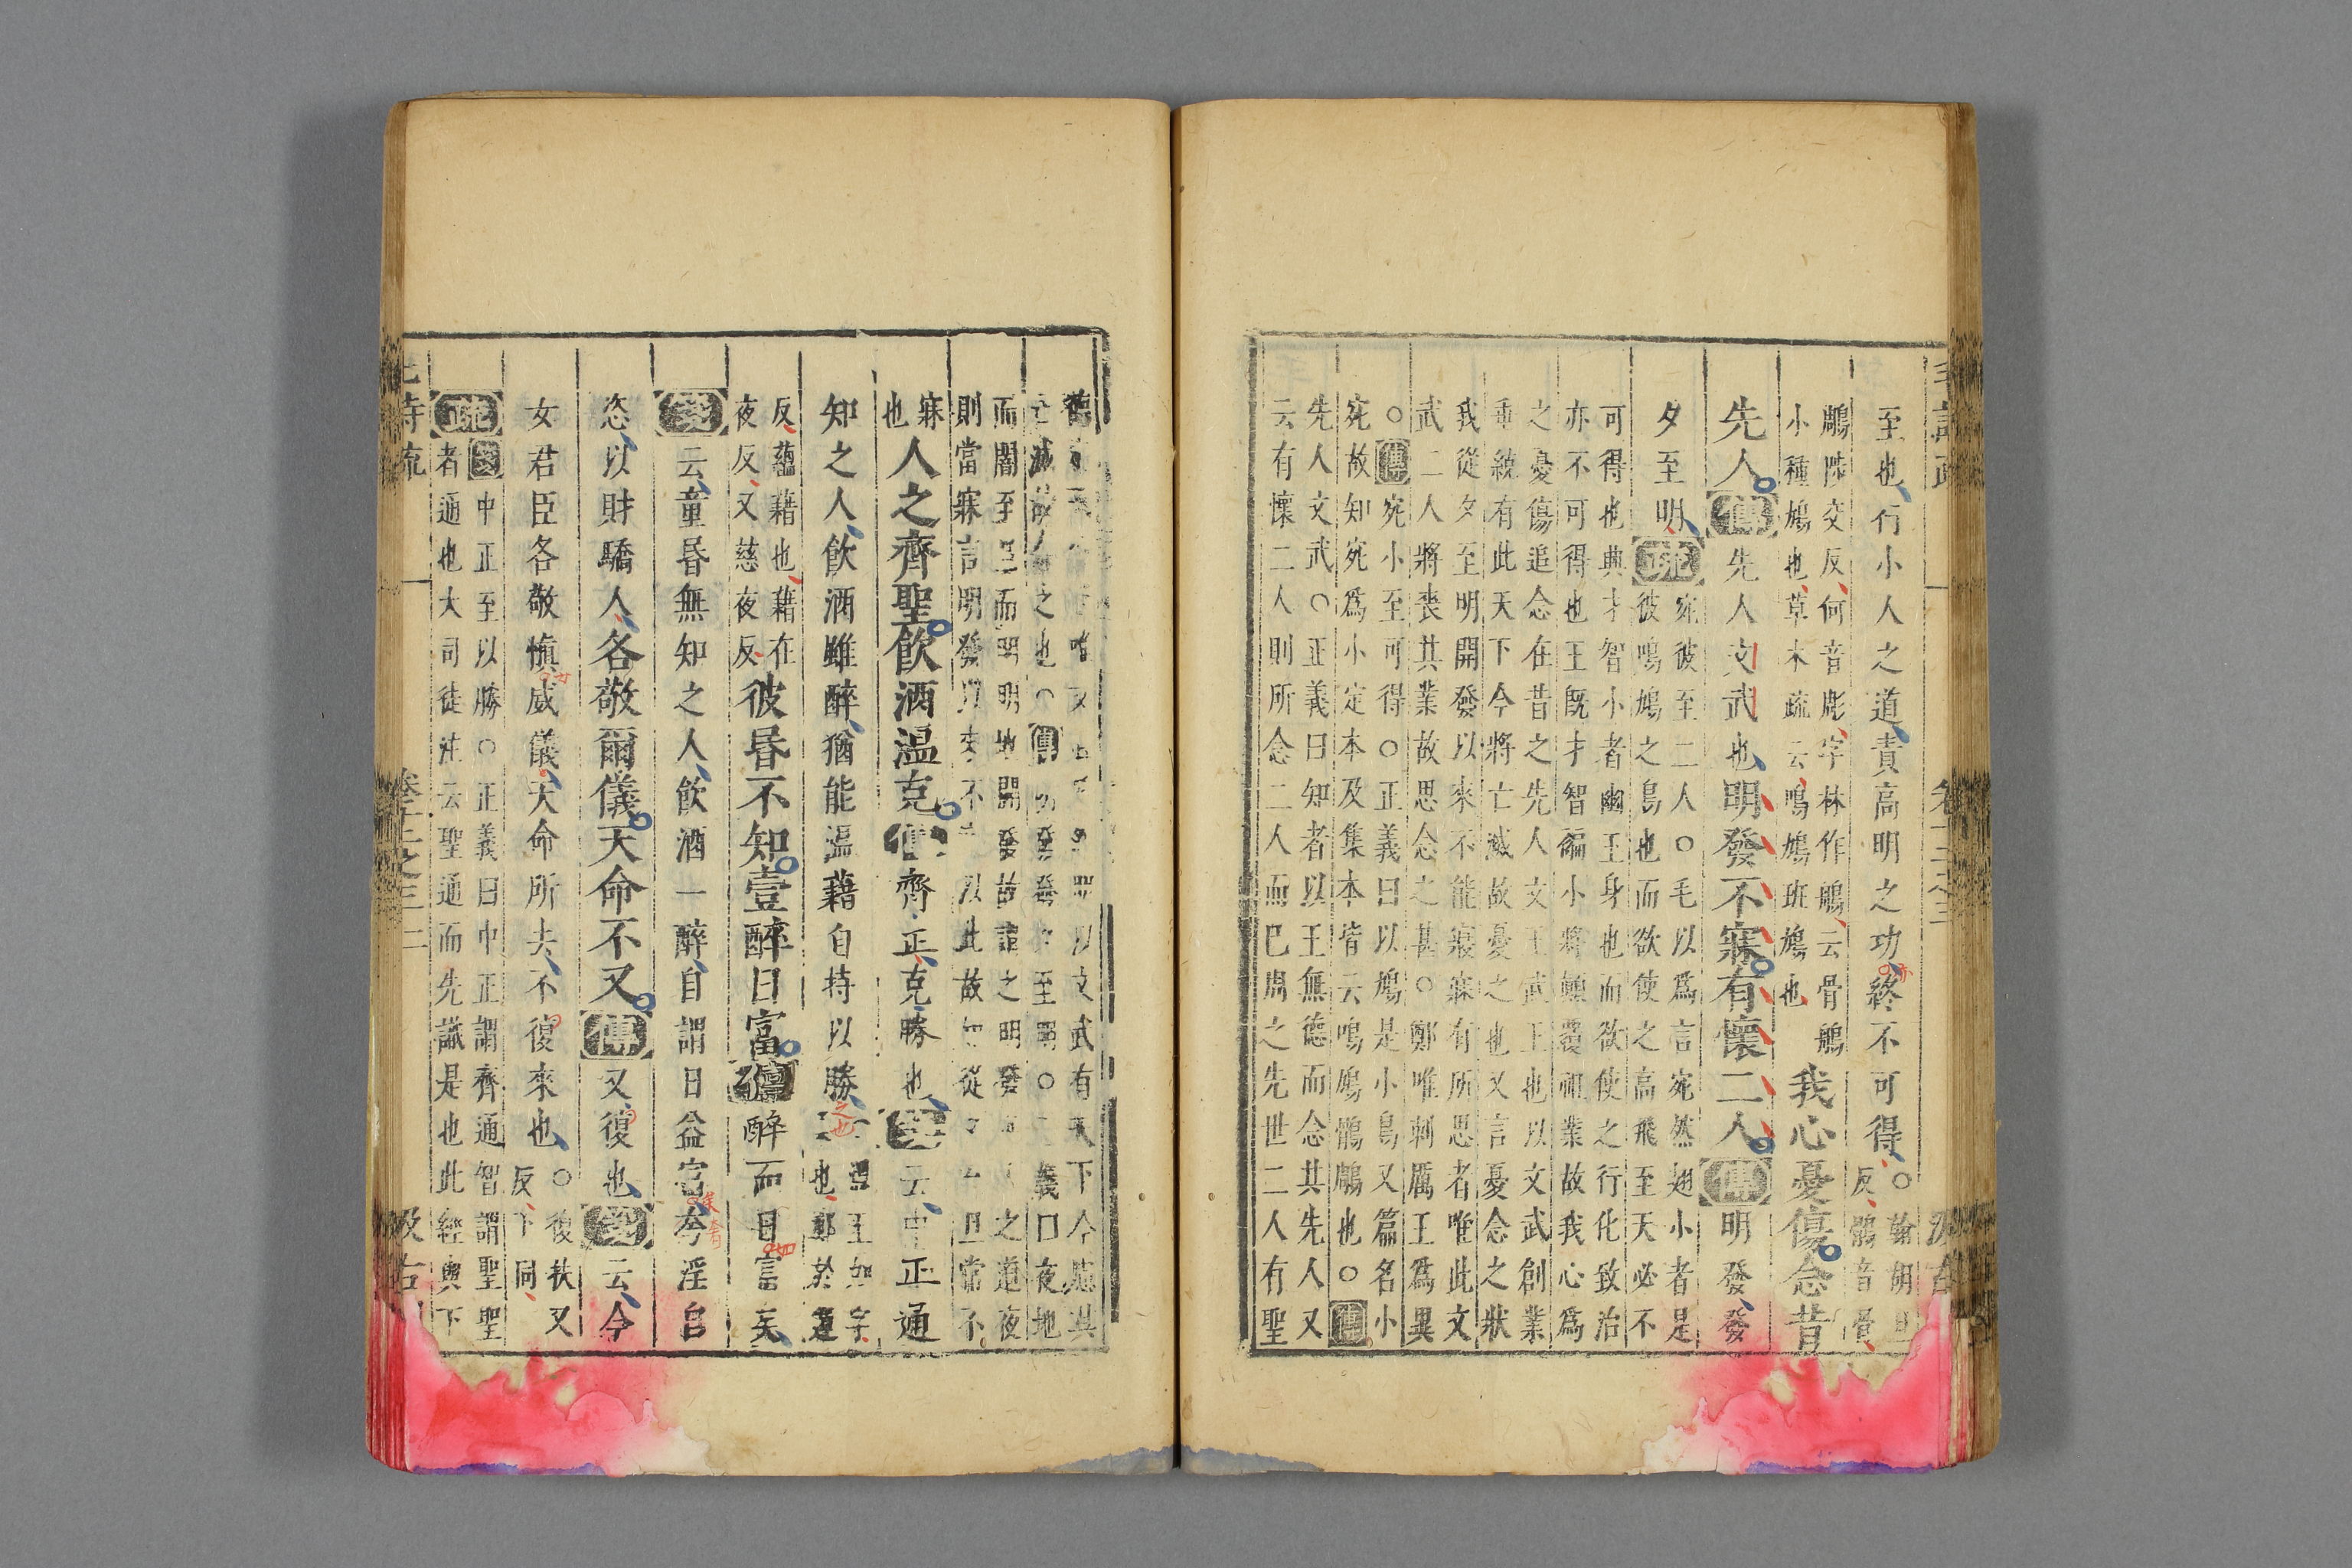 至也行小人之道責高明之功終不可得○翰胡旦
反鶻音骨
鵰陟交反何音彫字林作鵃云骨鵃
小種鳩也草木疏云鳴鳩班鳩也我心憂傷念昔
先人傳先人文武也明發不寐有懷二人傳明發發
夕至明疏宛彼至二人○毛以爲言宛然翅小者是
彼鳴鳩之鳥也而欲使之高飛至天必不
可得也興才智小者幽王身也而欲使之行化致治
亦不可得也王既才智褊小將顛覆祖業故我心爲
之憂傷追念在昔之先人文王武王也以文武創業
垂統有此天下今將亡滅故憂之也又言憂念之狀
我從夕至明開發以來不能寢寐有所思者唯此文
武二人將喪其業故思念之甚○鄭唯刺厲王爲異
○傳宛小至可得○正義曰以鳩是小鳥又篇名小
宛故知宛爲小定本及集本皆云鳴鳩鶻鵰也○傳
先人文武○正義曰知者以王無德而念其先人又
云有懷二人則所念二人而已周之先世二人有聖
德 以文武有天下今慮其
亡滅故 之也○傳明發發 至明○ 義曰夜地
而闇至旦而明明地開發故謂之明發 之道夜
則當寐言明發以來不 以此故知從 旦常不
寐
也人之齊聖飲酒溫克傳齊正克勝也箋云中正通
知之人飲酒雖醉猶能溫藉自持以勝 溫王如字
也鄭於運
反蘊藉也藉在
夜反又慈夜反彼昬不知壹醉日富傳醉而日富矣
箋云童昬無知之人飲酒一醉自謂日益富夸淫自
恣以財驕人各敬爾儀天命不又傳又復也箋云今
女君臣各敬愼威儀天命所去不復來也○復扶又
反下同
疏箋中正至以勝○正義曰中正謂齊通智謂聖聖
者通也大司徒注云聖通而先識是也此經與下